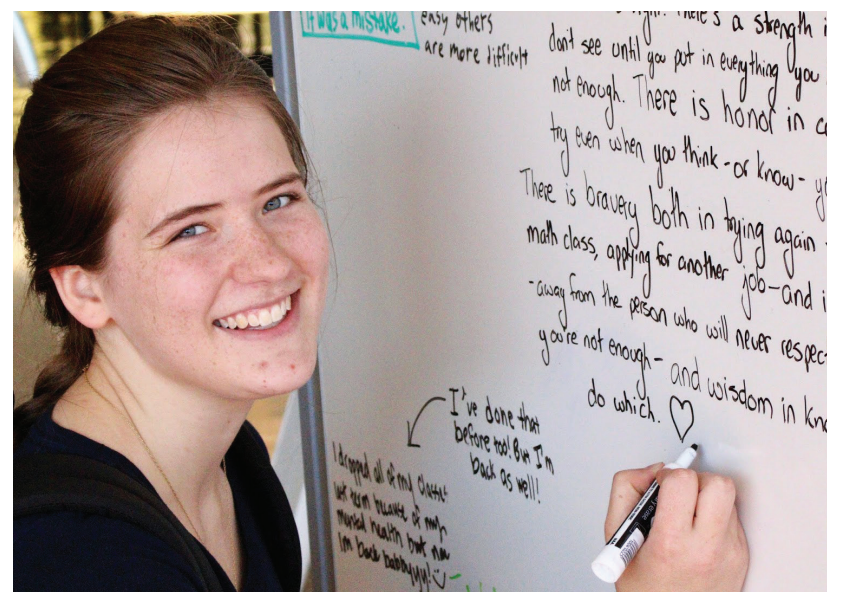 It was a mistake.
easy others
are more difficult
There's a strength i
don't see until you put in everything you
not enough. There is honor in c
try even when you think - or know - y
There is bravery both in trying again
math class, applying for another job - and i
- away from the person who will never respec
you're not enough - and wisdom in kno
do which. ♡
I've done that
before too! But I'm
back as well!
I dropped all of my classes
last term because of my
mental health but now
I'm back babbyyy!